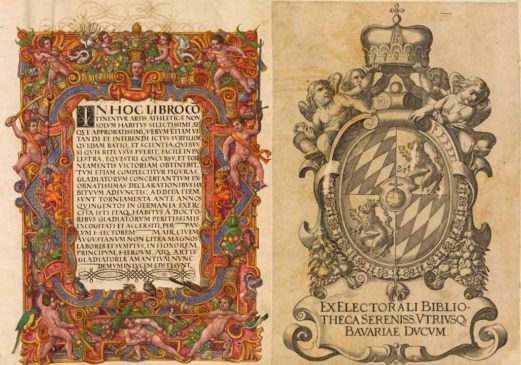 IN HOC LIBRO CO
TINENTVR ARTIS ATHLETICÆ NON
SOLVM HABITVS SELECTISSIMI AT
QVE APPROBATISSIMI, VERVM ETIAM VI
TANDI ET INFERENDI ICTVS SVBTILIOR
QVÆDAM RATIO, ET SCIENTIA, QVIBVS
SI QVIS RITE VSVS FVERIT, FACILE IN PA
LESTRA, EQVESTRI CONCVRSV, ET TOR
NEAMENTIS VICTORIAM OBTINEBIT,
TVM ETIAM COMPLECTITVR FIGVRAS
GLADIATORVM CONCERTANTIVM EX
ORNATISSIMAS DECLARATIONIBVS HA
BITVVM ADIVNCTIS: ADDITA ITEM
SVNT TORNEAMENTA ANTE ANNOS
QVINGENTOS IN GERMANIA EXER
CITA. ISTI ITAQ. HABITVS A DOCTO
RIBVS GLADIATORVM PERITISSIMIS
EXCOGITATI ET ACCERSITI, PER PAV
LVM HECTOREM MAIR, CIVEM
AVGVSTANVM NON CITRA MAGNOS
LABORES ET SVMPTVS, IN HONOREM
PRINCIPVM, HEROVM, ATQ. ARTIS
GLADIATORIÆ AMANTIVM, NVNC
DEMVM IN LVCEM EDITI SVNT
EX ELECTORALI BIBLIO-
THECA SERENISS. VTRIVSQ.
BAVARIAE DVCVM.